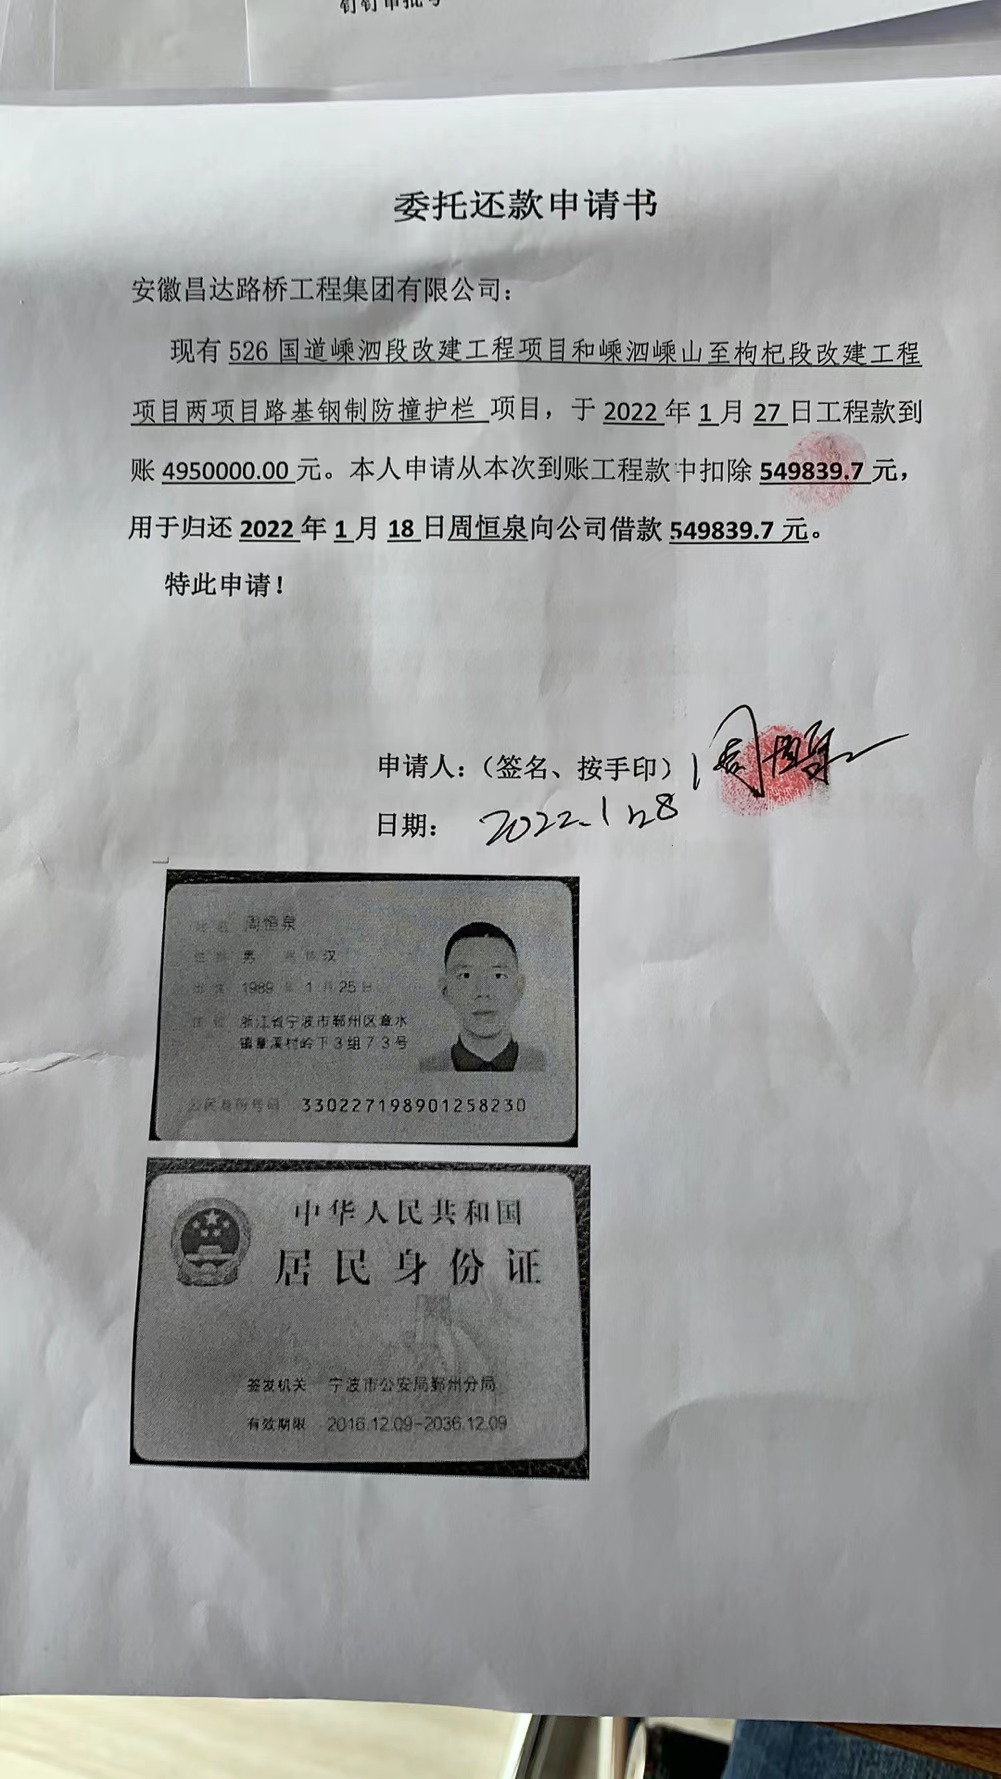 钉钉审批号
委托还款申请书
安徽昌达路桥工程集团有限公司：
现有 526 国道嵊泗段改建工程项目和嵊泗嵊山至枸杞段改建工程
项目两项目路基钢制防撞护栏 项目，于 2022 年 1 月 27 日工程款到
账 4950000.00 元。本人申请从本次到账工程款中扣除 549839.7 元，
用于归还 2022 年 1 月 18 日周恒泉向公司借款 549839.7 元。
特此申请！
申请人：（签名、按手印） 周恒泉
日期： 2022.1.28
姓名 周恒泉
性别 男 民族 汉
出生 1989 年 1 月 25 日
住址 浙江省宁波市鄞州区章水
镇童溪村岭下3组73号
公民身份号码 330227198901258230
中华人民共和国
居民身份证
签发机关 宁波市公安局鄞州分局
有效期限 2016.12.09-2036.12.09